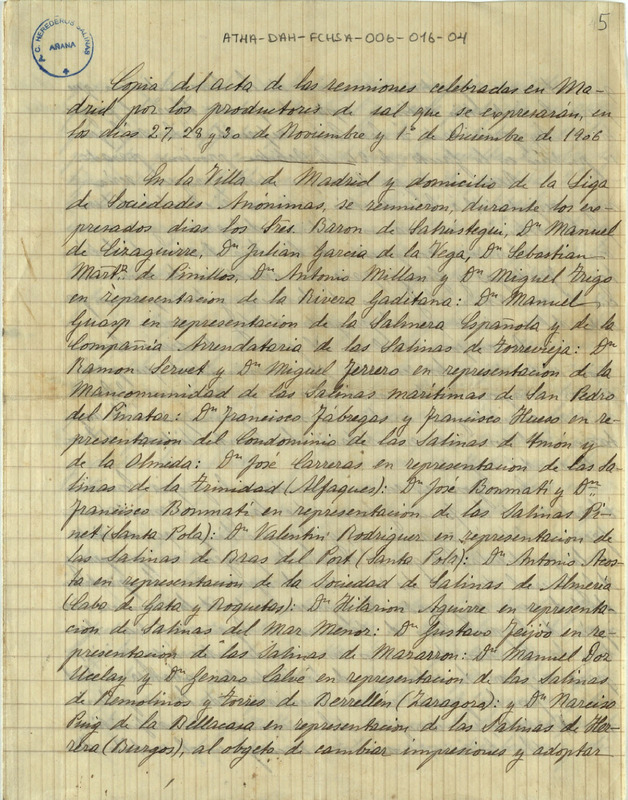 5
A. C. HEREDEROS SALINAS
AÑANA
ATHA-DAH-FCHSA-006-016-04
Copia del acta de las reuniones celebradas en Ma-
drid por los productores de sal que se expresarán, en
los días 27, 28 y 30 de Noviembre y 1º de Diciembre de 1906
En la Villa de Madrid y domicilio de la Liga
de Sociedades Anónimas, se reunieron, durante los ex-
presados dias los Sres. Baron de Satrústegui, Dn Manuel
de Eizaguirre, Dn Julian Garcia de la Vega, Dn Sebastian
Martz de Pinillos, Dn Antonio Millan y Dn Miguel Trigo
en representacion de la Rivera Gaditana: Dn Manuel
Guasp en representacion de la Salinera Española y de la
Compañia Arrendataria de las Salinas de Torrevieja: Dn
Ramon Servet y Dn Miguel Ferrero en representacion de la
Mancomunidad de las Salinas maritimas de San Pedro
del Pinatar: Dn Francisco Fábregas y Francisco Hueso en re-
presentacion del Condominio de las Salinas de Imon y
de la Olmeda: Dn José Carreras en representacion de las Sa-
linas de la Trinidad (Alfaques): Dn José Bonmatí y Dn
Francisco Bonmati en representacion de las Salinas Pi-
net (Santa Pola): Dn Valentin Rodriguez en representacion de
las Salinas de Bras del Port (Santa Pola): Dn Antonio Acos-
ta en representacion de la Sociedad de Salinas de Almería
(Cabo de Gata y Roquetas): Dn Hilarion Aguirre en representa-
cion de Salinas del Mar Menor: Dn Gustavo Feijóo en re-
presentacion de las Salinas de Mazarron: Dn Manuel Doz
Ucelay y Dn Genaro Salvé en representacion de las Salinas
de Remolinos y Torres de Berrellén (Zaragoza): y Dn Narciso
Puig de la Bellacasa en representacion de las Salinas de Her-
rera (Burgos), al obgeto de cambiar impresiones y adoptar